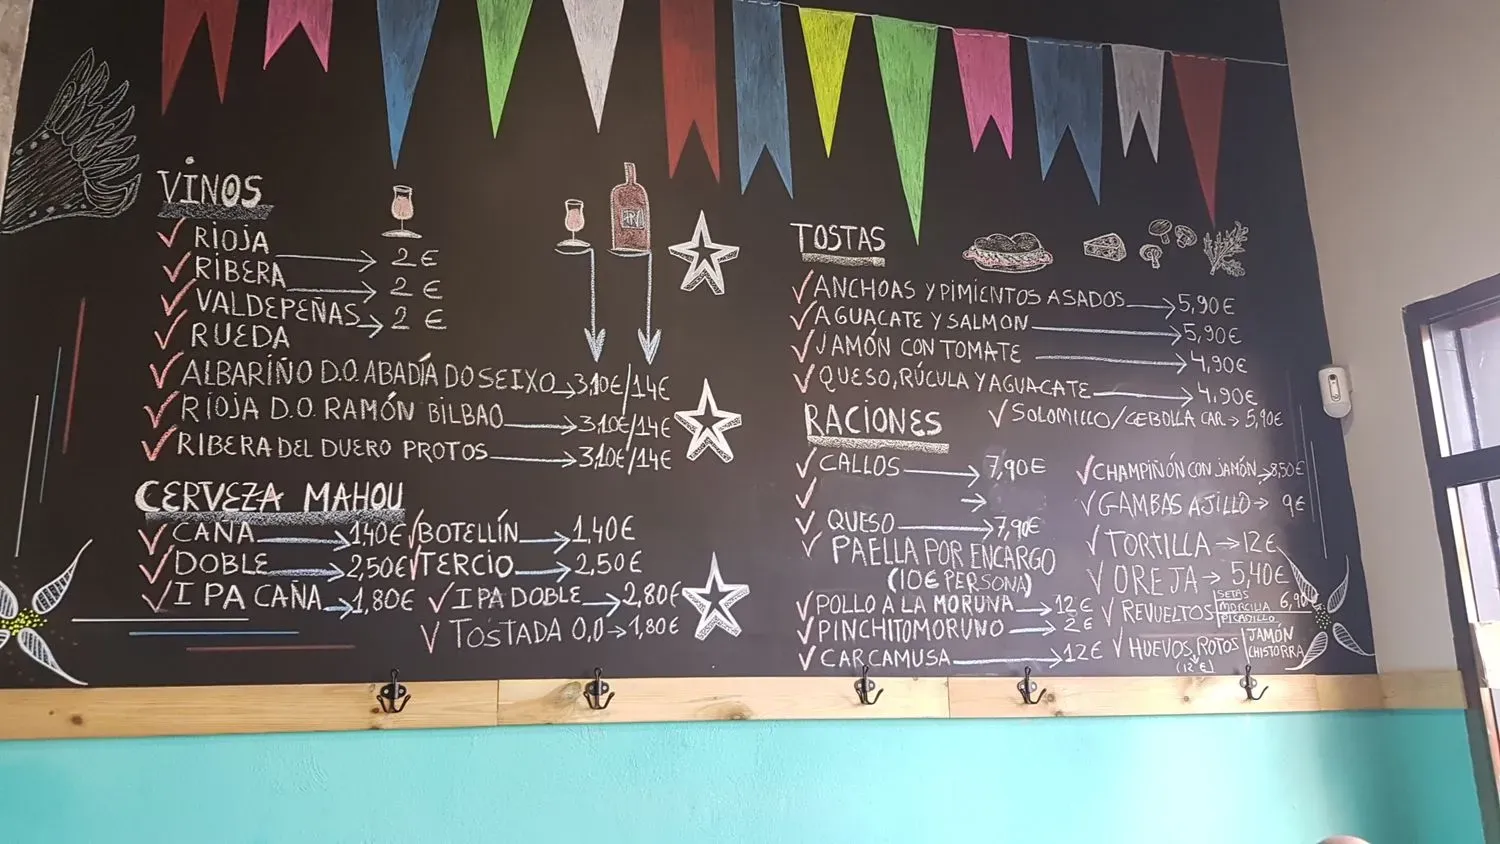 VINOS
RIOJA 2€
RIBERA 2€
VALDEPEÑAS 2€
RUEDA
ALBARIÑO D.O. ABADÍA DO SEIXO 3,10€/14€
RIOJA D.O. RAMÓN BILBAO 3,10€/14€
RIBERA DEL DUERO PROTOS 3,10€/14€
CERVEZA MAHOU
CAÑA 1,40€ BOTELLÍN 1,40€
DOBLE 2,50€ TERCIO 2,50€
IPA CAÑA 1,80€ IPA DOBLE 2,80€
TOSTADA 0,0 1,80€
TOSTAS
ANCHOAS Y PIMIENTOS ASADOS 5,90€
AGUACATE Y SALMON 5,90€
JAMÓN CON TOMATE 4,90€
QUESO, RÚCULA Y AGUACATE 4,90€
SOLOMILLO/CEBOLLA CAR. 5,90€
RACIONES
CALLOS 7,90€
QUESO 7,90€
PAELLA POR ENCARGO
(10€ PERSONA)
POLLO A LA MORUNA 12€
PINCHITO MORUNO 2€
CARCAMUSA 12€
CHAMPIÑÓN CON JAMÓN 8,50€
GAMBAS AJILLO 9€
TORTILLA 12€
OREJA 5,40€
REVUELTOS SETAS
MORCILLA 6,90
PICADILLO
HUEVOS ROTOS JAMÓN
CHISTORRA
(12€)